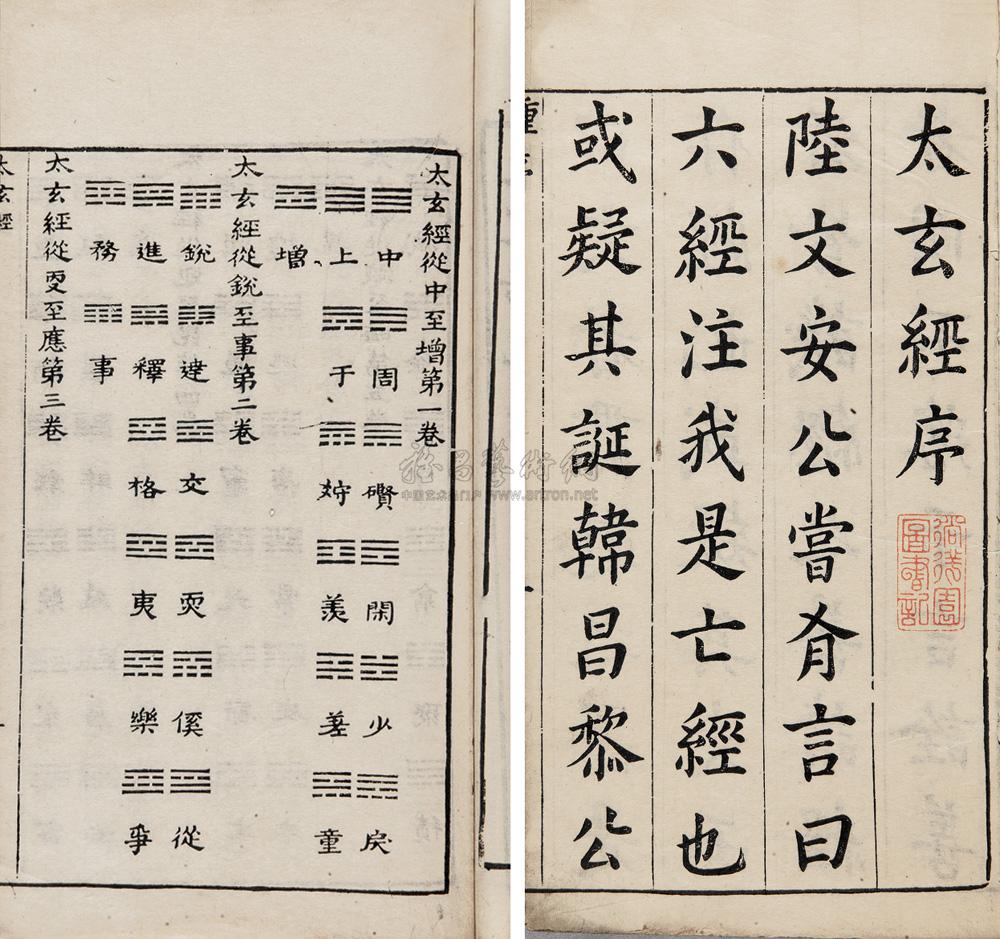 太玄經序
陸文安公嘗有言曰
六經注我是亡經也
或疑其誕韓昌黎公
太玄經從中至增第一卷
中 周 礥 閑 少 戾
上 于 狩 羨 差 童
增
太玄經從銳至事第二卷
銳 達 交 耎 傒 從
進 釋 格 夷 樂 爭
務 事
太玄經從更至應第三卷
太玄經
雅昌藝術網
www.artron.net